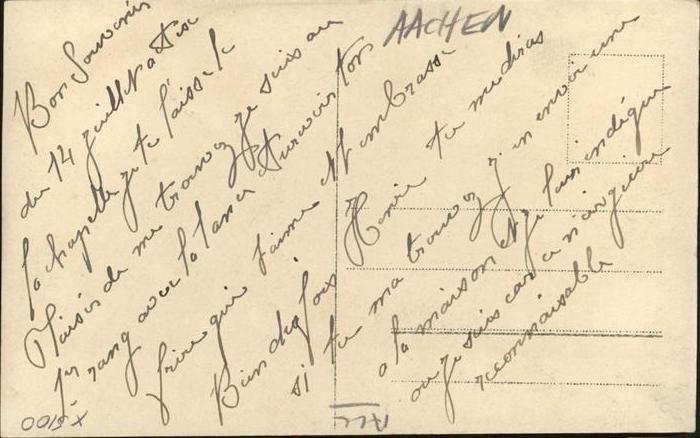 AACHEN
Bon Souvenir
du 14 juillet a Aix
la chapelle je te laisse le
Plaisir de me trouvez je suis au
1er rang avec la lance Auvoir ton
frère qui t'aime et t'embrasse
Bien des fois Henri tu me diras
si tu ma trouvez j'en envoi une
a la maison et je leur indique
ou je suis car ce n'ai guère
reconnaissable
X5100
ALL